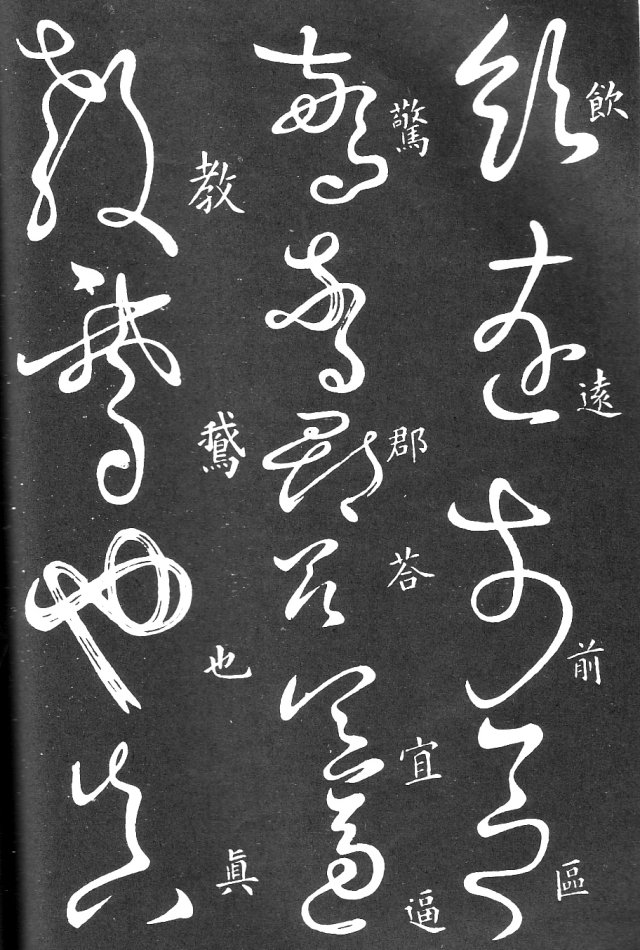 飲遠前區
驚郡荅宜逼
教鵞也眞